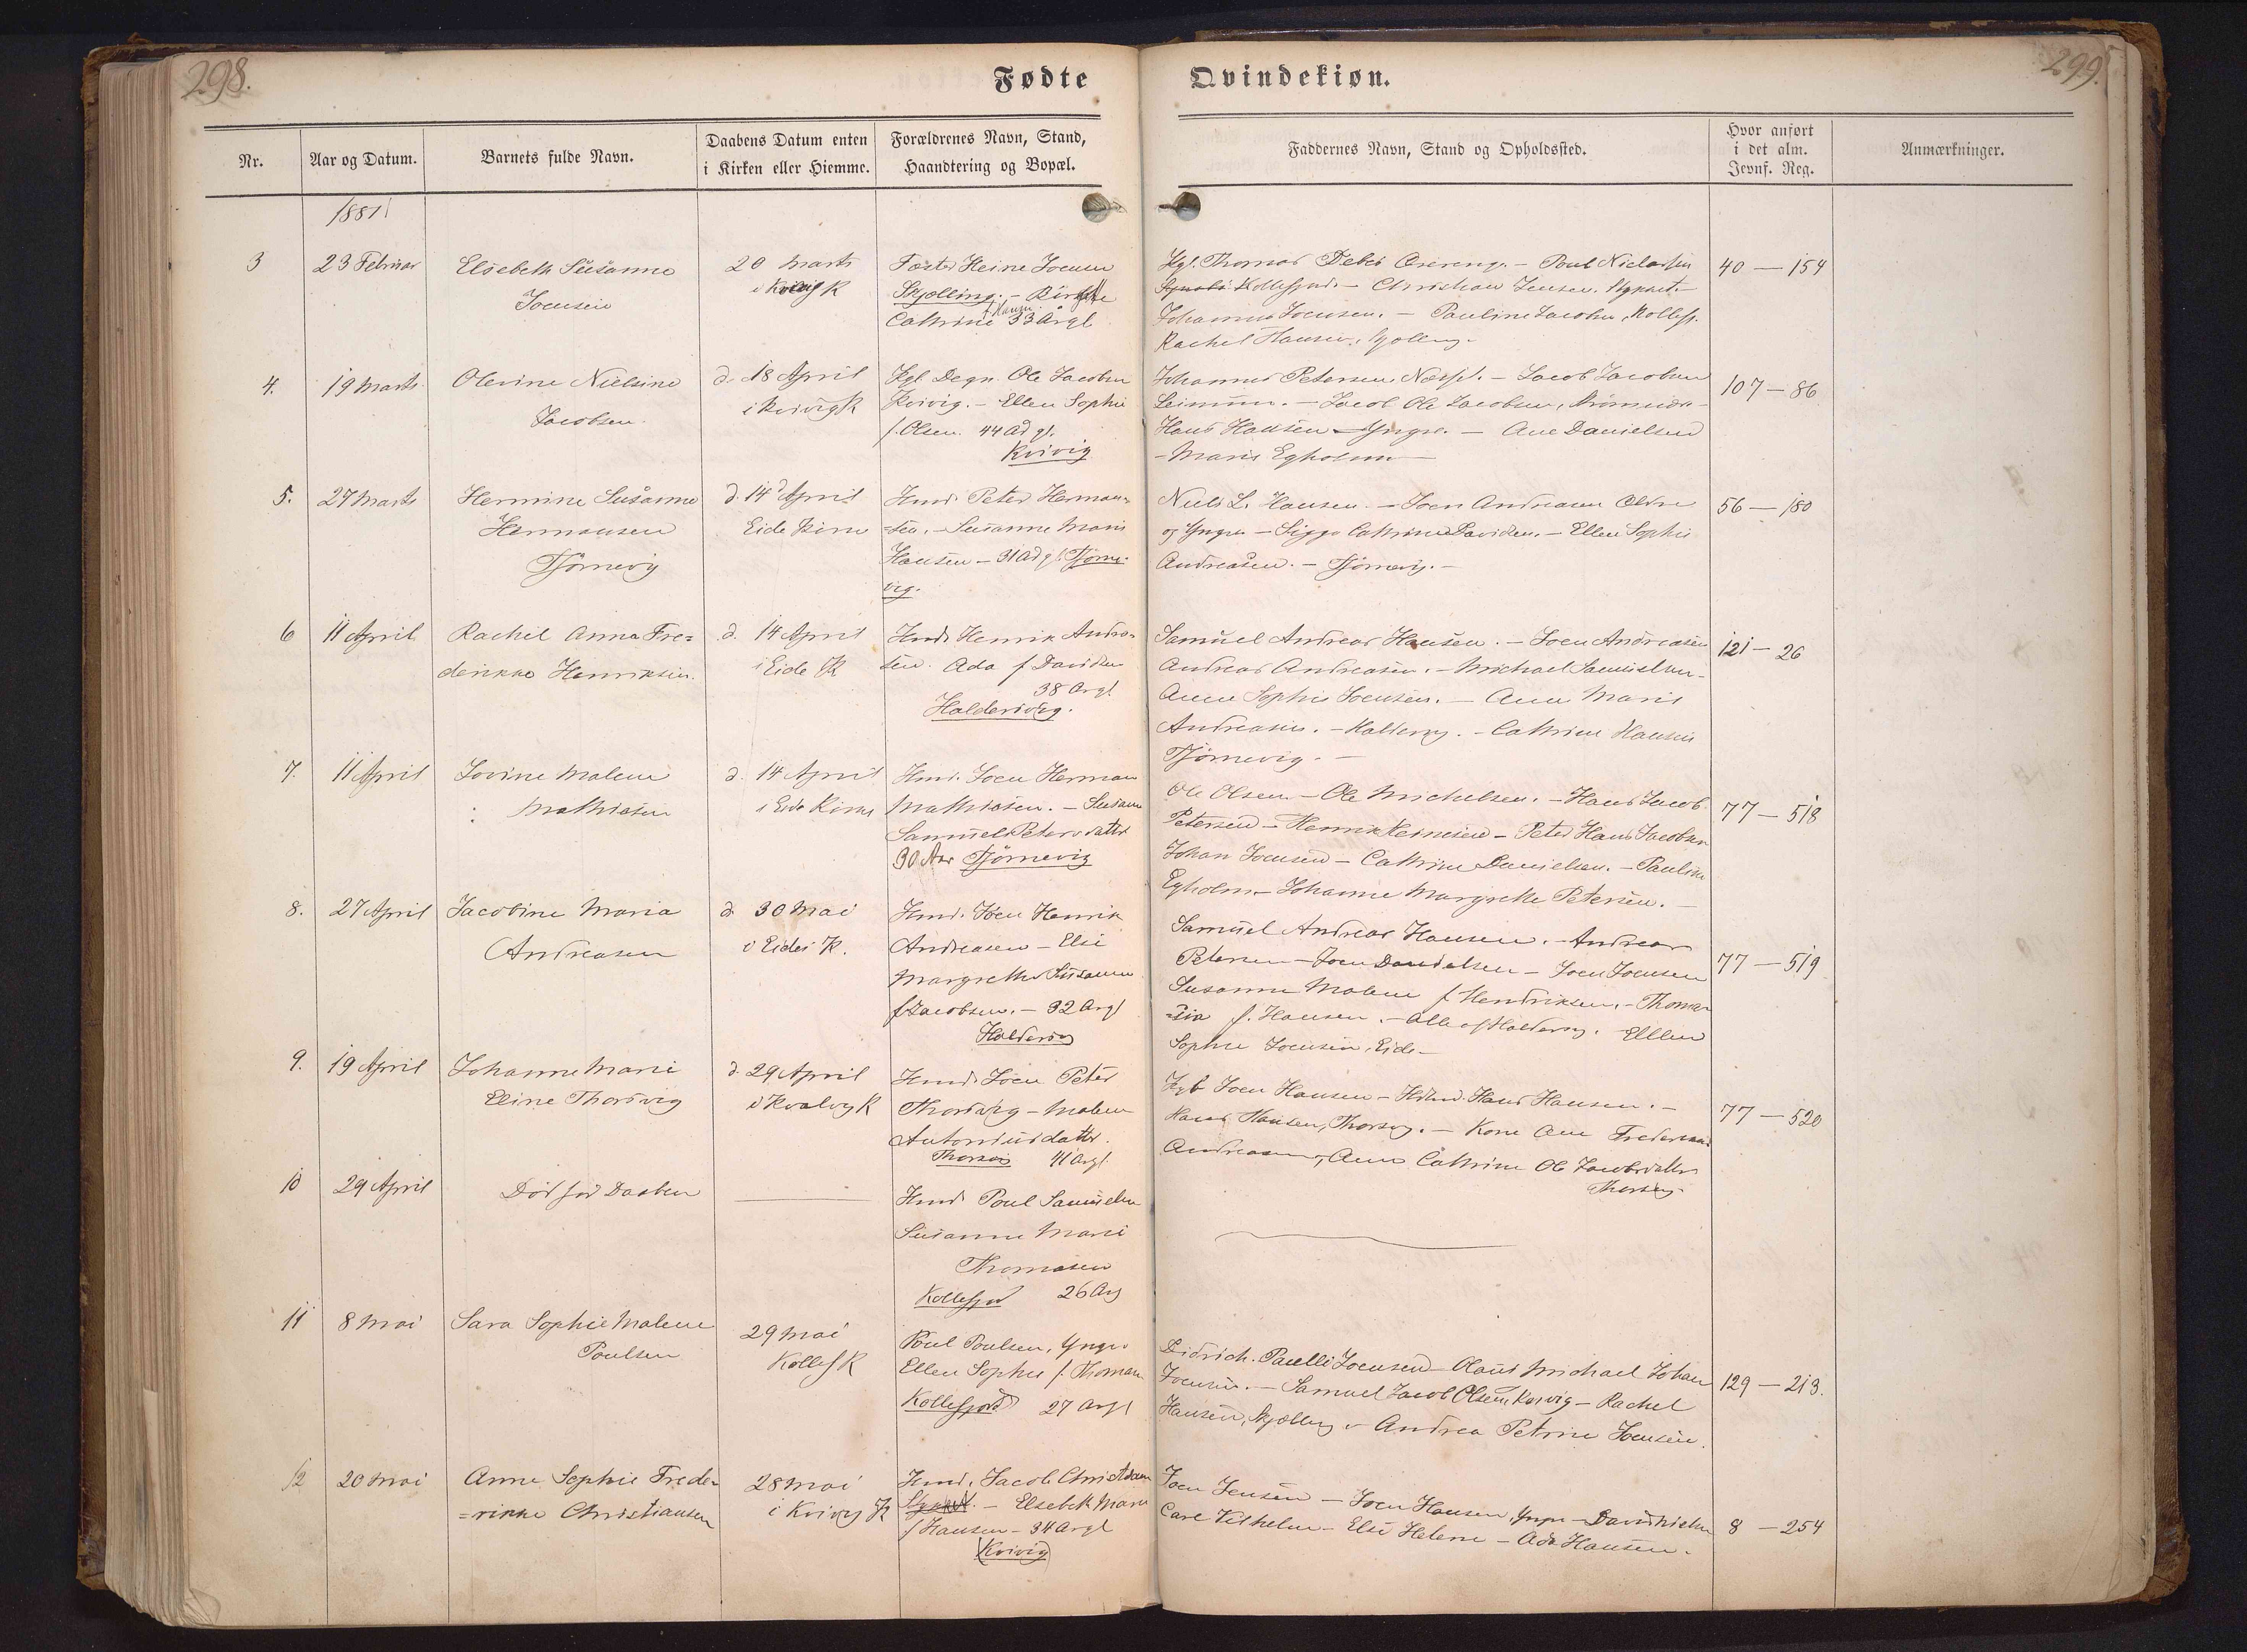 298.
Fødte
Qvindekiøn.
299.
Nr.
Aar og Datum.
Barnets fulde Navn.
Daabens Datum enten
i Kirken eller Hiemme.
Forældrenes Navn, Stand,
Haandtering og Bopæl.
Faddernes Navn, Stand og Opholdssted.
Hvor anført
i det alm.
Jevnf. Reg.
Anmærkninger.
1881
3
23 Februar
Elsebeth Susanne
Joensen
20 Marts
i Kvivig K
Fæster Heine Joensen
Skjelling. - Birgitte
f. Hansen
Cathrine 33 Årgl
Kgl. Thomas Debes - Poul Niclasen
Kollefjord - Christian Jensen
Johannes Joensen. - Pauline Jacobsen, Kollefj.
Rachel Hansen, Skjelling.
40 - 154
4.
19 Marts
Olevine Nielsine
Jacobsen.
d. 18 April
i Kvivig K
Kgl. Degn. Ole Jacobsen
Kvivig. - Ellen Sophie
f. Olsen. 44 Aar gl.
Kvivig
Johannes Petersen - Jacob Jacobsen
Leinum. - Jacob Ole Jacobsen, Strømnæs -
Hans Hansen Yngre. - Ane Danielsen
- Maria Egholm
107 - 86
5.
27 Marts
Hermine Susanne
Hermansen
Tjørnevig
d. 14 April
Eide Kirke
Hmd. Peter Herman-
=sen. - Susanne Maria
Hansen - 31 Aar gl. Tjørne-
vig.
Niels L. Hansen. - Joen Andreasen Ældre
og Yngre - Sigge Cathrine Davidsen. - Ellen Sophie
Andreasen. - Tjørnevig. -
56 - 180
6
11 April
Rachel Anna Fre=
derikke Henriksen.
d. 14 April
i Eide K
Hmd. Henrik Andrea-
sen. Ada f Davidsen
38 Årgl.
Haldersvig.
Samuel Andreas Hansen. - Joen Andreasen
Andreas Andreasen. - Michael Samuelsen -
Anne Sophie Joensen. - Anne Maria
Andreasen. - Haldersvig. - Cathrine Hansen
Tjørnevig. -
121 - 26
7.
11 April
Jovine Malene
Mathiasen
d. 14 April
i Eide Kirke
Hmd. Joen Herman
Mathiasen. - Susanne
Samuel Petersdatter
30 Aar Tjørnevig
Ole Olsen - Ole Michelsen. - Hans Jacob
Petersen - Henrik Heinesen - Peter Hans Jacobsen
Johan Joensen - Cathrine Danielsen. - Pauline
Egholm - Johanne Margrethe Petersen. -
77 - 518
8.
27 April
Jacobine Maria
Andreasen
d. 30 Mai
i Eides K.
Hmd. Joen Henrik
Andreasen - Else
Margrethe Susanne
f Jacobsen. - 32 Årgl
Haldersvig
Samuel Andreas Hansen. - Andreas
Petersen - Joen Danielsen - Joen Joensen
Susanne Malene f Hendriksen. - Thoma-
=sia f. Hansen. - Alle af Haldersvig. Elllen
Sophie Joensen, Eide -
77 - 519
9.
19 April
Johanne Marie
Eline Thorsvig
d. 29 April
i Hvalvig K
Hmd. Joen Peter
Thorsvig - Malene
Antoniusdatter.
Thorsvig 41 Årgl.
Kgb Joen Hansen - Hans Hansen. -
Hansen, Thorsvig. - Kone Ane
Andreasen, Anne Cathrine Ole Jacobsdatter
Thorsvig
77 - 520
10
29 April
Død før Daaben
Hmd. Poul Samuelsen
Susanne Marie
Thomasen
Kollefjord 26 Årg
11
8 Mai
Sara Sophie Malene
Poulsen
29 Mai
Kollef K
Poul Poulsen, Yngre
Ellen Sophie f. Thomasen
Kollefjord 27 Årgl
Didrich. Poulli Joensen - Olaus Michael Johan
Joensen. - Samuel Jacob Olsen, Kvivig - Rachel
Hansen, Skjelling - Andrea Petrine Joensen.
129 - 213.
12
20 Mai
Anne Sophie Frede-
=rikke Christiansen
28 Mai
i Kvivig K
Hmd. Jacob Christiansen
- Elsebeth Marie
f Hansen - 34 Årgl
Kvivig
Joen Jensen - Joen Hansen, Yngre - David Nielsen
Carl Vilhelm - Else Helene - Ada Hansen.
8 - 254